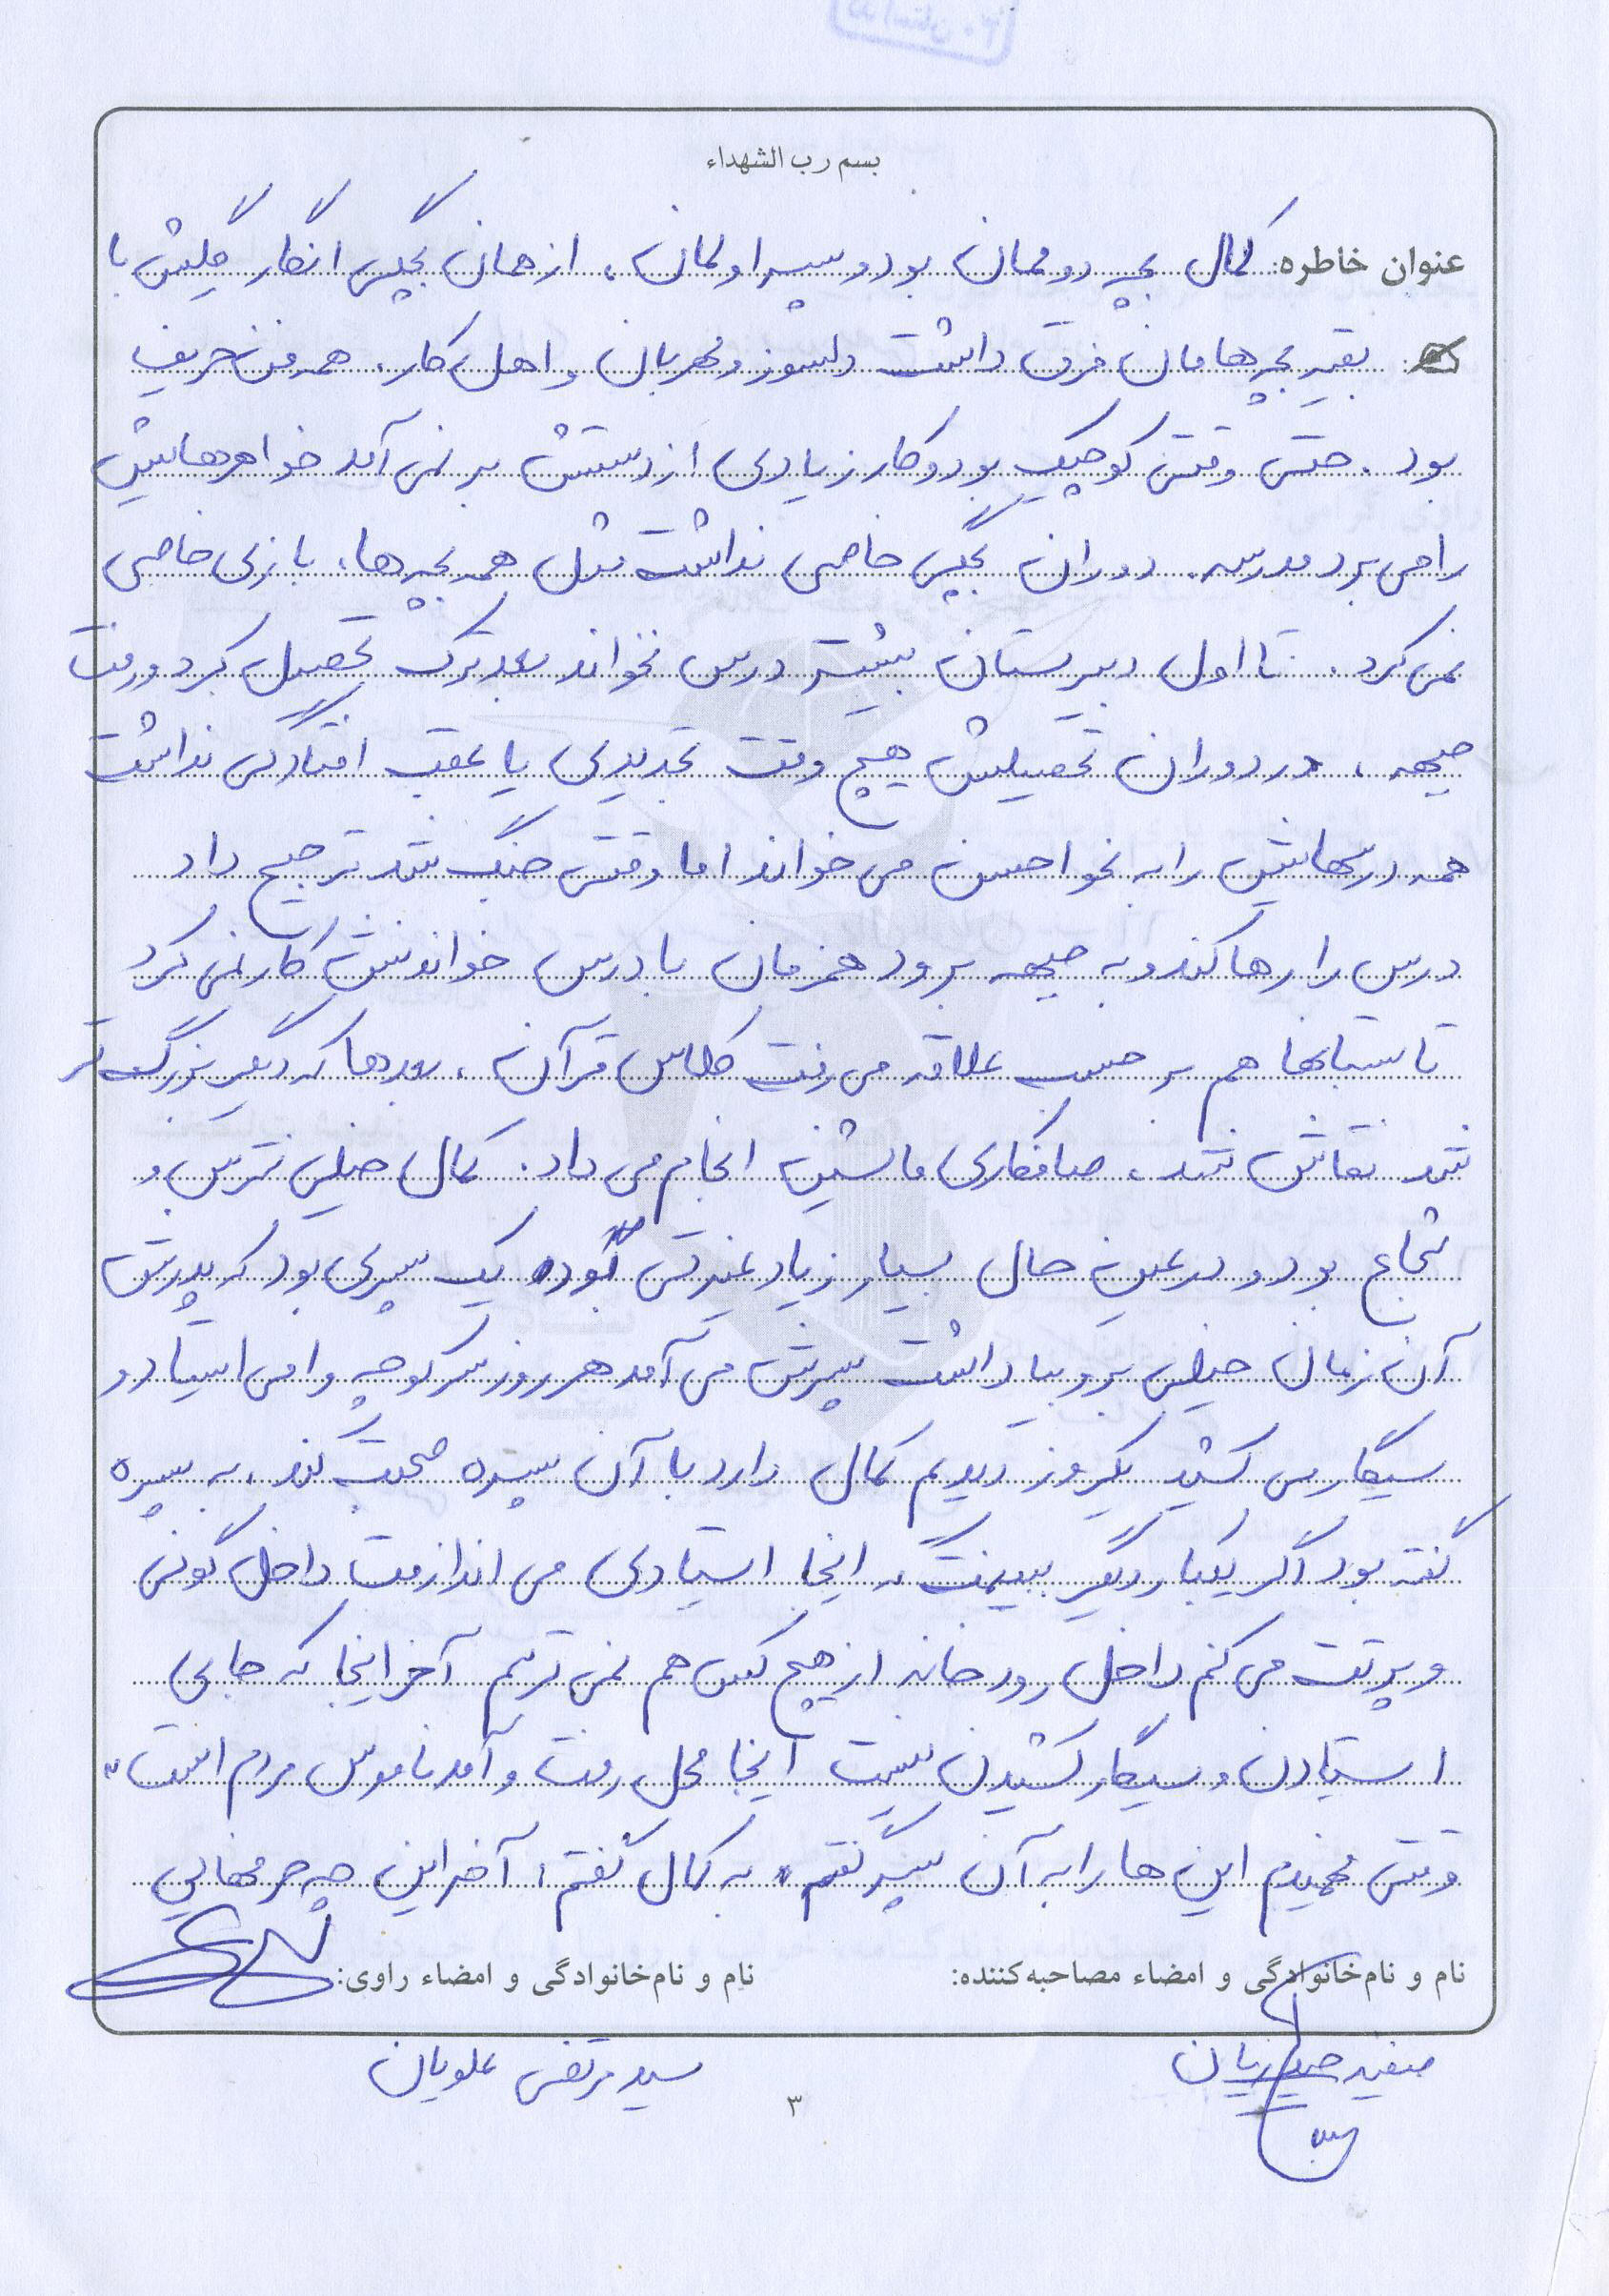 بسم رب الشهداء
عنوان خاطره: کمال بچه دوممان بود و پسر اولمان، از همان بچگی انگار گِلش با
بقیه بچه هامان فرق داشت دلسوز و مهربان و اهل کار. همه فن حریف
بود. حتی وقتی کوچک بود و کار زیادی از دستش بر نمی آمد خواهرهایش
را می برد مدرسه. دوران بچگی خاصی نداشت مثل همه بچه ها، بازی خاصی
نمی کرد. تا اول دبیرستان بیشتر درس نخواند بعد ترک تحصیل کرد و رفت
جبهه، در دوران تحصیلش هیچ وقت تجدیدی یا عقب افتادگی نداشت
همه درسهایش را به نحو احسن می خواند اما وقتی جنگ شد ترجیح داد
درس را رها کند و به جبهه برود همزمان با درس خواندنش کار نمی کرد
تابستانها هم بر حسب علاقه می رفت کلاس قرآن، بعدها که دیگر بزرگ تر
شد نقاش شد، صافکاری ماشین انجام می داد. کمال خیلی نترس و
شجاع بود و در عین حال بسیار زیاد غیرتی بود، یک پسری بود که پدرش
آن زمان خیلی برو بیا داشت پسرش می آمد هر روز سر کوچه وامی استاد و
سیگار می کشید یکروز دیدم کمال دارد با آن پسره صحبت کند، به پسره
گفته بود اگر یکبار دیگر ببینمت که اینجا استادی می اندازمت داخل گونی
و پرتت می کنم داخل رودخانه از هیچ کس هم نمی ترسم آخر اینجا که جای
استادن و سیگار کشیدن نیست اینجا محل رفت و آمد ناموس مردم است"
وقتی فهمیدم این ها را به آن پسر گفته، به کمال گفتم، آخر این چه حرفهایی
نام و نام‌خانوادگی و امضاء مصاحبه‌کننده: نام و نام‌خانوادگی و امضاء راوی:
سید مرتضی علویان
۳